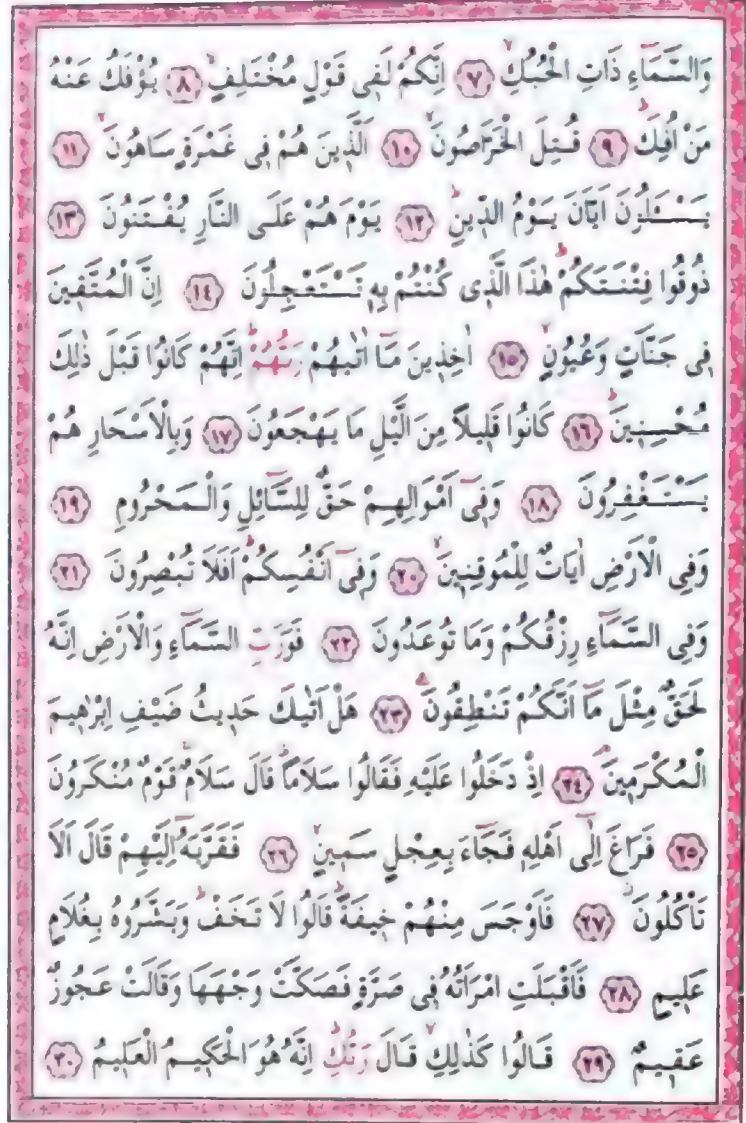 وَالسَّمَٓاءِ ذَاتِ الْحُبُكِۙ ﴿٧﴾ اِنَّكُمْ لَفٖى قَوْلٍ مُخْتَلِفٍۙ ﴿٨﴾ يُؤْفَكُ عَنْهُ
مَنْ اُفِكَۜ ﴿٩﴾ قُتِلَ الْخَرَّاصُونَۙ ﴿١٠﴾ اَلَّذٖينَ هُمْ فٖى غَمْرَةٍ سَاهُونَۙ ﴿١١﴾
يَسْـَٔلُونَ اَيَّانَ يَوْمُ الدّٖينِۜ ﴿١٢﴾ يَوْمَ هُمْ عَلَى النَّارِ يُفْتَنُونَ ﴿١٣﴾
ذُوقُوا فِتْنَتَكُمْۜ هٰذَا الَّذٖى كُنْتُمْ بِهٖ تَسْتَعْجِلُونَ ﴿١٤﴾ اِنَّ الْمُتَّقٖينَ
فٖى جَنَّاتٍ وَعُيُونٍۙ ﴿١٥﴾ اٰخِذٖينَ مَٓا اٰتٰيهُمْ رَبُّهُمْۜ اِنَّهُمْ كَانُوا قَبْلَ ذٰلِكَ
مُحْسِنٖينَۜ ﴿١٦﴾ كَانُوا قَلٖيلًا مِنَ الَّيْلِ مَا يَهْجَعُونَ ﴿١٧﴾ وَبِالْاَسْحَارِ هُمْ
يَسْتَغْفِرُونَ ﴿١٨﴾ وَفٖٓى اَمْوَالِهِمْ حَقٌّ لِلسَّٓائِلِ وَالْمَحْرُومِ ﴿١٩﴾
وَفِى الْاَرْضِ اٰيَاتٌ لِلْمُوقِنٖينَۙ ﴿٢٠﴾ وَفٖٓى اَنْفُسِكُمْۜ اَفَلَا تُبْصِرُونَ ﴿٢١﴾
وَفِى السَّمَٓاءِ رِزْقُكُمْ وَمَا تُوعَدُونَ ﴿٢٢﴾ فَوَرَبِّ السَّمَٓاءِ وَالْاَرْضِ اِنَّهُ
لَحَقٌّ مِثْلَ مَٓا اَنَّكُمْ تَنْطِقُونَ۟ ﴿٢٣﴾ هَلْ اَتٰيكَ حَدٖيثُ ضَيْفِ اِبْرٰهٖيمَ
الْمُكْرَمٖينَۢ ﴿٢٤﴾ اِذْ دَخَلُوا عَلَيْهِ فَقَالُوا سَلَامًاۜ قَالَ سَلَامٌۚ قَوْمٌ مُنْكَرُونَ
﴿٢٥﴾ فَرَاغَ اِلٰٓى اَهْلِهٖ فَجَٓاءَ بِعِجْلٍ سَمٖينٍۙ ﴿٢٦﴾ فَقَرَّبَهُٓ اِلَيْهِمْ قَالَ اَلَا
تَأْكُلُونَۘ ﴿٢٧﴾ فَاَوْجَسَ مِنْهُمْ خٖيفَةًۜ قَالُوا لَا تَخَفْۜ وَبَشَّرُوهُ بِغُلَامٍ
عَلٖيمٍ ﴿٢٨﴾ فَاَقْبَلَتِ امْرَاَتُهُ فٖى صَرَّةٍ فَصَكَّتْ وَجْهَهَا وَقَالَتْ عَجُوزٌ
عَقٖيمٌ ﴿٢٩﴾ قَالُوا كَذٰلِكِۙ قَالَ رَبُّكِۜ اِنَّهُ هُوَ الْحَكٖيمُ الْعَلٖيمُ ﴿٣٠﴾